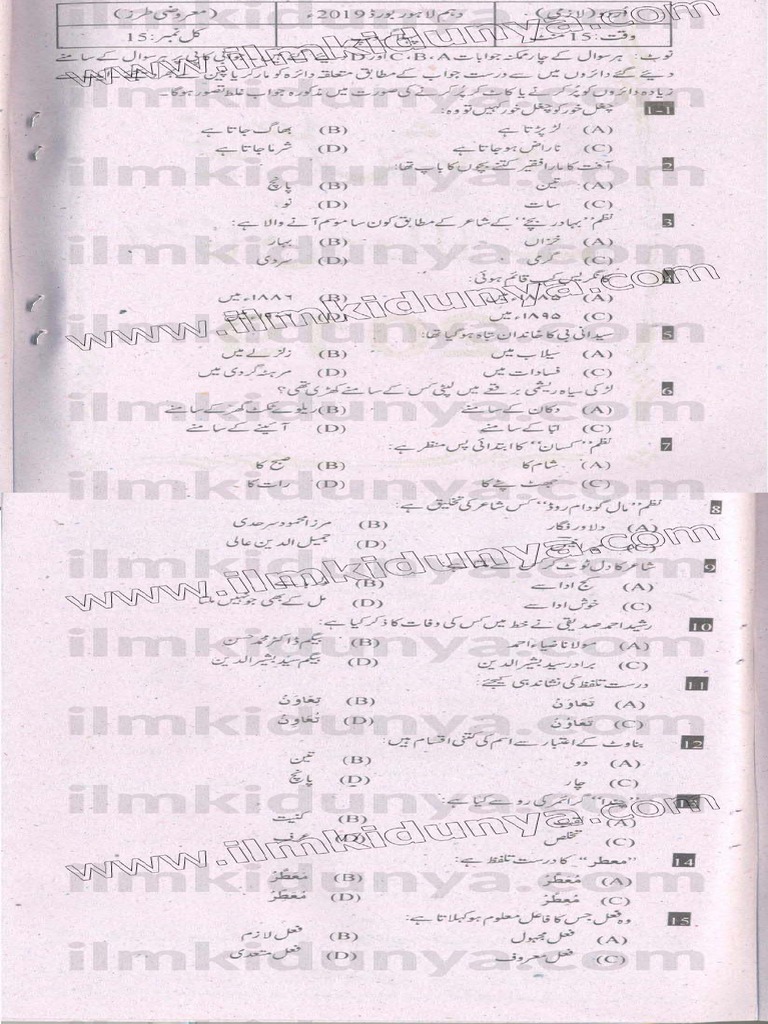 اردو (لازمی) دہم لاہور بورڈ 2019ء (معروضی طرز)
وقت: 15 منٹ کل نمبر: 15
نوٹ: ہر سوال کے چار ممکنہ جوابات A، B، C اور D
دیئے گئے دائروں میں سے درست جواب کے مطابق متعلقہ دائرہ کو مارکر یا پین
زیادہ دائروں کو پُر کرنے یا کاٹ کر پُر کرنے کی صورت میں مذکورہ جواب غلط تصور ہوگا۔
1-1 چغل خور کو چغل خور کہیں تو وہ:
(A) لڑ پڑتا ہے (B) بھاگ جاتا ہے
(C) ناراض ہو جاتا ہے (D) شرما جاتا ہے
2 آفت کا مارا فقیر کتنے بچوں کا باپ تھا:
(A) تین (B) پانچ
(C) سات (D) نو
3 نظم "بہادر بچے" کے شاعر کے مطابق کون سا موسم آنے والا ہے:
(A) خزاں (B) بہار
(C) گرمی (D) سردی
کانگریس کب قائم ہوئی:
(A) ۱۸۸۵ء میں (B) ۱۸۸۶ء میں
(C) ۱۸۹۵ء میں (D)
5 سیدانی بی کا خاندان تباہ ہو گیا تھا:
(A) سیلاب میں (B) زلزلے میں
(C) فسادات میں (D) مرہٹہ گردی میں
6 لڑکی سیاہ ریشمی برقعے میں لپٹی کس کے سامنے کھڑی تھی؟
(A) دکان کے سامنے (B) ریلوے ٹکٹ گھر کے سامنے
(C) اتا کے سامنے (D) آئینے کے سامنے
7 نظم "کسان" کا ابتدائی پس منظر ہے:
(A) شام کا (B) صبح کا
(C) جھٹ پٹے کا (D) رات کا
8 نظم "مال گودام روڈ" کس شاعر کی تخلیق ہے:
(A) دلاور فگار (B) مرزا محمود سرحدی
(C) (D) جمیل الدین عالی
9 شاعر کا دل لوٹ کر
(A) کج ادا سے (B)
(C) خوش ادا سے (D) مل کے بھی جو نہیں ملتا
10 رشید احمد صدیقی نے خط میں کس کی وفات کا ذکر کیا ہے:
(A) مولانا ضیاء احمد (B) بیگم ڈاکٹر محمد حسن
(C) برادر سید بشیر الدین (D) بیگم سید بشیر الدین
11 درست تلفظ کی نشاندہی کیجئے:
(A) تَعَاوَنُ (B) تِعَاوُنُ
(C) تَعَاوُنْ (D) تُعَاوِنْ
12 بناوٹ کے اعتبار سے اسم کی کتنی اقسام ہیں:
(A) دو (B) تین
(C) چار (D) پانچ
گرائمر کی رو سے کیا ہے:
(A) لقب (B) کنیت
(C) تخلص (D) عرف
14 "معطر" کا درست تلفظ ہے:
(A) (B)
(C) (D)
15 وہ فعل جس کا فاعل معلوم ہو کہلاتا ہے:
(A) فعل مجہول (B) فعل لازم
(C) فعل معروف (D) فعل متعدی
ilmkidunya.com
www.ilmkidunya.com